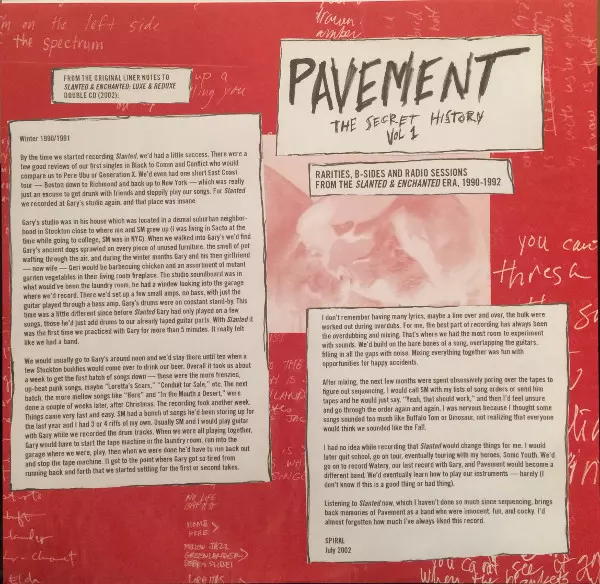 m on the left side
the spectrum
FROM THE ORIGINAL LINER NOTES TO
SLANTED & ENCHANTED: LUXE & REDUXE
DOUBLE CD (2002):
PAVEMENT
THE SECRET HISTORY
VOL 1
RARITIES, B-SIDES AND RADIO SESSIONS
FROM THE SLANTED & ENCHANTED ERA, 1990-1992
Winter 1990/1991
By the time we started recording Slanted, we'd had a little success. There were a
few good reviews of our first singles in Black to Comm and Conflict who would
compare us to Pere Ubu or Generation X. We'd even had one short East Coast
tour — Boston down to Richmond and back up to New York — which was really
just an excuse to get drunk with friends and sloppily play our songs. For Slanted
we recorded at Gary's studio again, and that place was insane.
Gary's studio was in his house which was located in a dismal suburban neighbor-
hood in Stockton close to where me and SM grew up (I was living in Sacto at the
time while going to college, SM was in NYC). When we walked into Gary's we'd find
Gary's ancient dogs sprawled on every piece of unused furniture, the smell of pot
wafting through the air, and during the winter months Gary and his then girlfriend
— now wife — Geri would be barbecuing chicken and an assortment of mutant
garden vegetables in their living room fireplace. The studio soundboard was in
what would've been the laundry room, he had a window looking into the garage
where we'd record. There we'd set up a few small amps, no bass, with just the
guitar played through a bass amp. Gary's drums were on constant stand-by. This
time was a little different since before Slanted Gary had only played on a few
songs, those he'd just add drums to our already taped guitar parts. With Slanted it
was the first time we practiced with Gary for more than 5 minutes. It really felt
like we had a band.
We would usually go to Gary's around noon and we'd stay there until ten when a
few Stockton buddies would come over to drink our beer. Overall it took us about
a week to get the first batch of songs down — these were the more frenzied,
up-beat punk songs, maybe "Loretta's Scars," "Conduit for Sale," etc. The next
batch, the more mellow songs like "Here" and "In the Mouth a Desert," were
done a couple of weeks later, after Christmas. The recording took another week.
Things came very fast and easy. SM had a bunch of songs he'd been storing up for
the last year and I had 3 or 4 riffs of my own. Usually SM and I would play guitar
with Gary while we recorded the drum tracks. When we were all playing together,
Gary would have to start the tape machine in the laundry room, run into the
garage where we were, play, then when we were done he'd have to run back out
and stop the tape machine. It got to the point where Gary got so tired from
running back and forth that we started settling for the first or second takes.
I don't remember having many lyrics, maybe a line over and over, the bulk were
worked out during overdubs. For me, the best part of recording has always been
the overdubbing and mixing. That's where we had the most room to experiment
with sounds. We'd build on the bare bones of a song, overlapping the guitars,
filling in all the gaps with noise. Mixing everything together was fun with
opportunities for happy accidents.
After mixing, the next few months were spent obsessively poring over the tapes to
figure out sequencing. I would call SM with my lists of song orders or send him
tapes and he would just say, "Yeah, that should work," and then I'd feel unsure
and go through the order again and again. I was nervous because I thought some
songs sounded too much like Buffalo Tom or Dinosaur, not realizing that everyone
would think we sounded like the Fall.
I had no idea while recording that Slanted would change things for me. I would
later quit school, go on tour, eventually touring with my heroes, Sonic Youth. We'd
go on to record Watery, our last record with Gary, and Pavement would become a
different band. We'd eventually learn how to play our instruments — barely (I
don't know if this is a good thing or bad thing).
Listening to Slanted now, which I haven't done so much since sequencing, brings
back memories of Pavement as a band who were innocent, fun, and cocky. I'd
almost forgotten how much I've always liked this record.
SPIRAL
July 2002
you can
thresh
NO LIFE
HOME >
HERE
MELLOW JAZZ
you can not see it